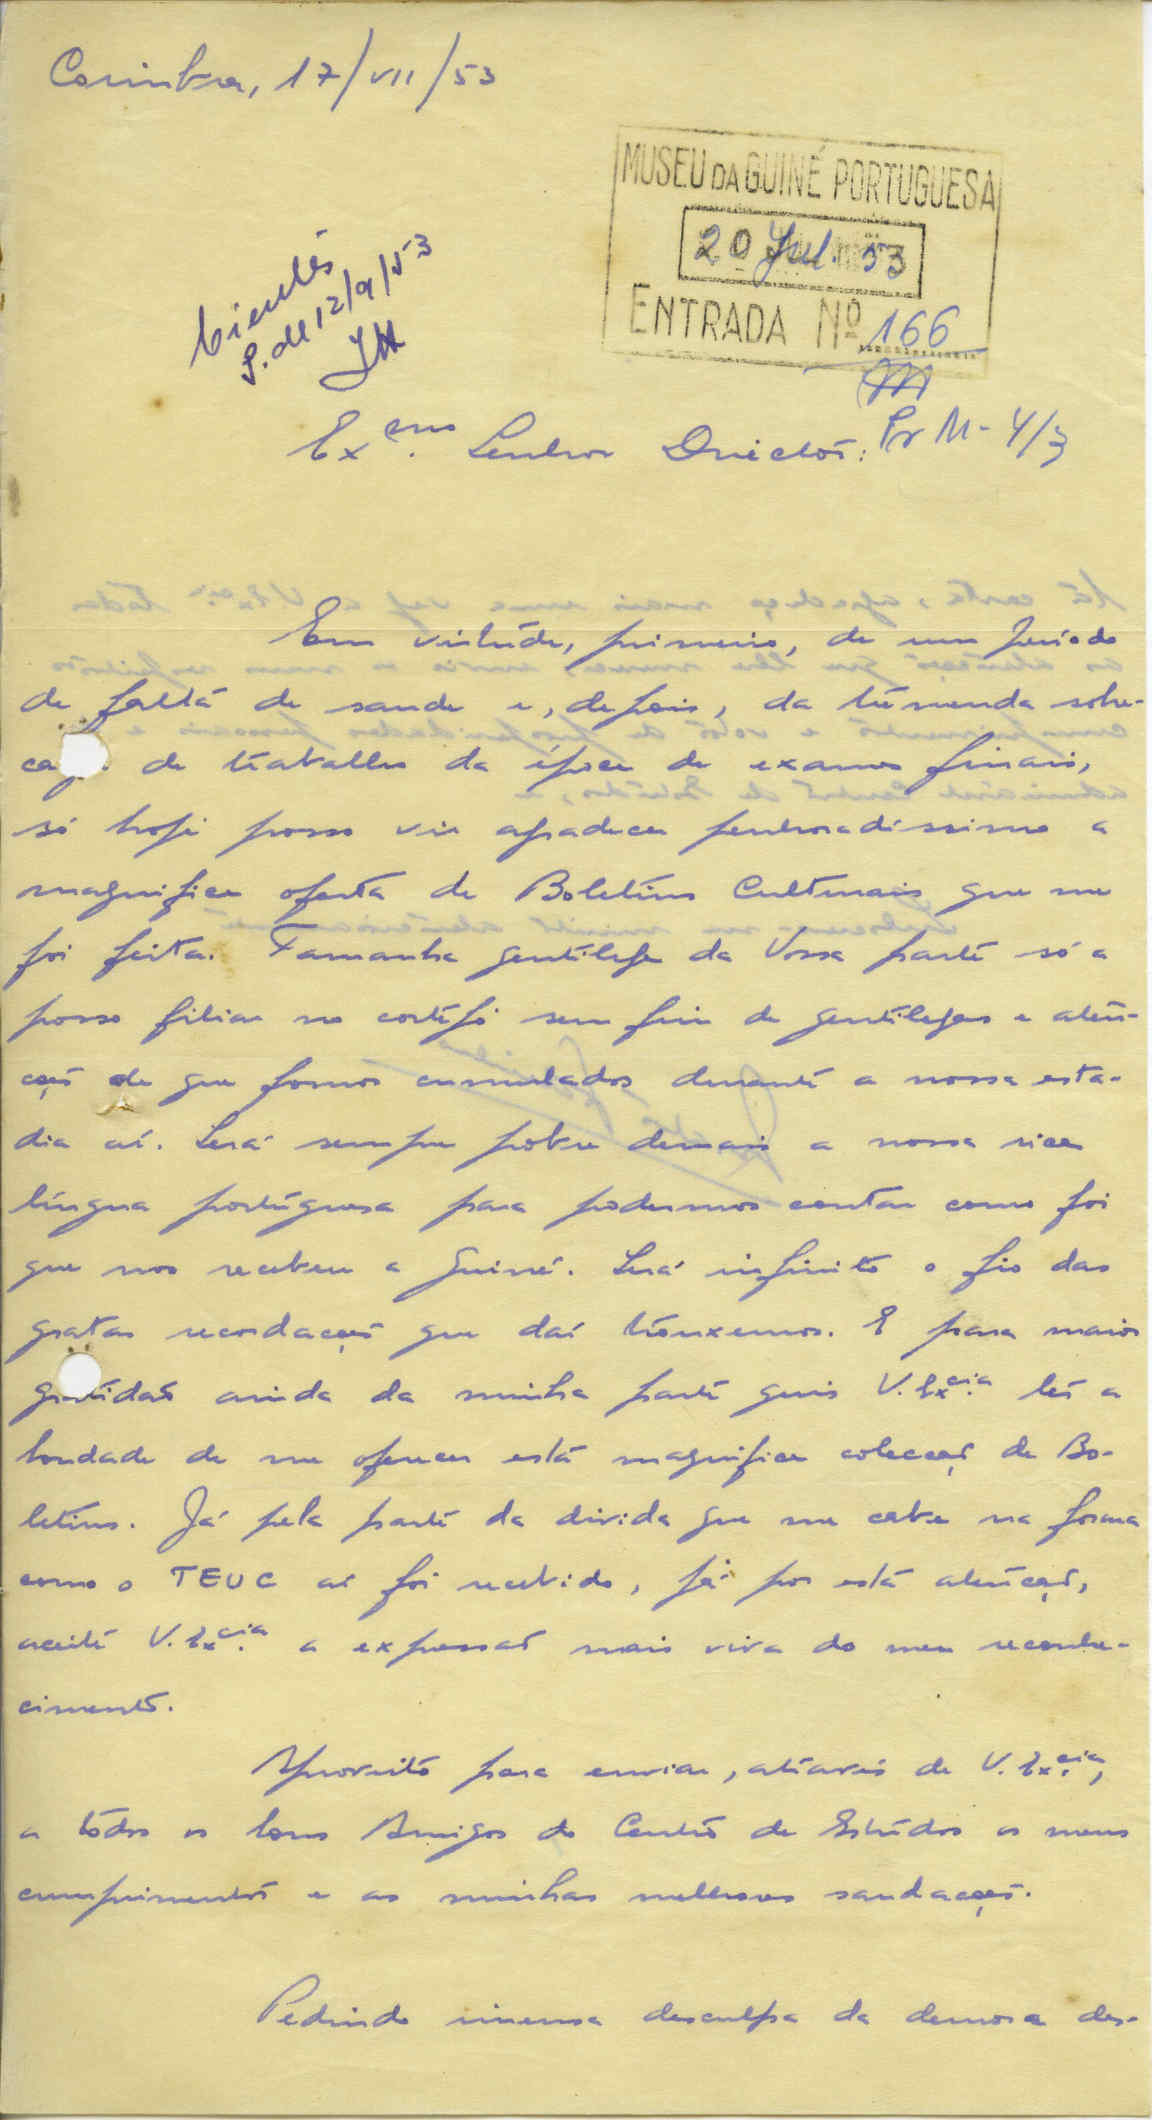 Coimbra, 17/VII/53
MUSEU DA GUINÉ PORTUGUESA
20 Jul. 53
ENTRADA Nº 166
Ciente
12/9/53
Pr M-4/3
Ex.mo Senhor Director:
Em virtude, primeiro, de um período
de falta de saude e, depois, da tremenda sobre-
carga de trabalho da época de exames finais,
só hoje posso vir agradecer penhoradissimo a
magnifica oferta de Boletins Culturais que me
foi feita. Tamanha gentileza da Vossa parte só a
posso filiar no cortejo sem fim de gentilezas e aten-
ções de que fomos cumulados durante a nossa esta-
dia aí. Será sempre pobre demais a nossa rica
língua portuguesa para podermos contar como foi
que nos recebeu a Guiné. Será infinito o fio das
gratas recordações que daí trouxemos. E para maior
gratidão ainda da minha parte quis V. Ex.cia ter a
bondade de me oferecer esta magnifica colecção de Bo-
letins. Já pela parte da divida que me cabe na forma
como o TEUC aí foi recebido, já por esta atenção,
aceite V. Ex.cia a expressão mais viva do meu reconhe-
cimento.
Aproveito para enviar, através de V. Ex.cia,
a todos os bons Amigos do Centro de Estudos os meus
cumprimentos e as minhas melhores saudações.
Pedindo imensa desculpa da demora des-